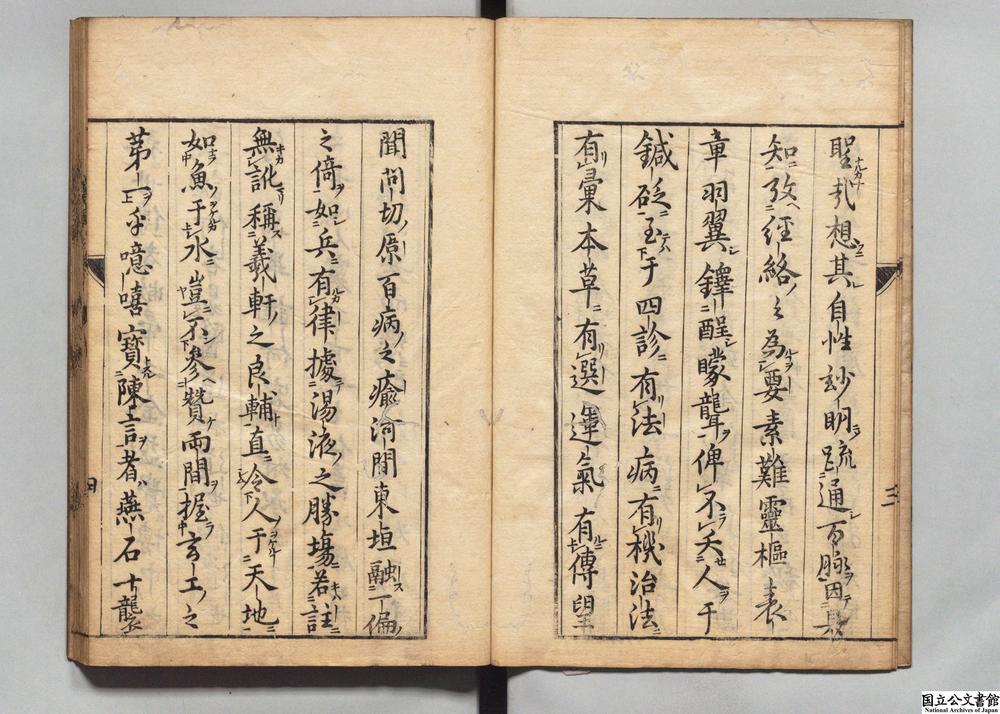 聖哉想其自性玅明疏通百脉因具
知攷經絡之為要素難靈樞表
章羽翼鐸醒矇聾俾不夭人于
鍼砭至于四診有法病有機治法
有彙本草有選運氣有傳望
三
聞問切原百病之瘉河間東垣融一偏
之倚如兵有律據湯液之勝場若註
無訛稱羲軒之良輔直令人于天地
如魚于水豈不參贊兩間握玄工之
苐一乎噫嘻寶陳言者燕石十襲
国立公文書館
National Archives of Japan